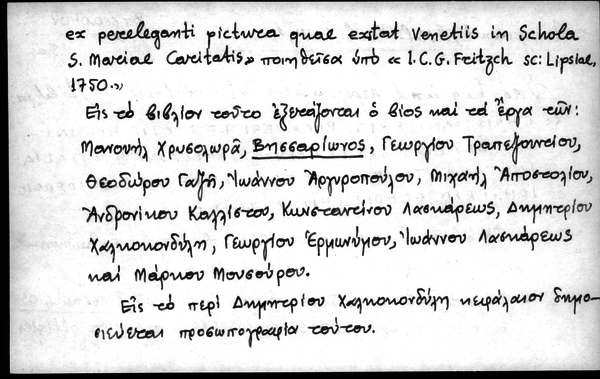 ex pereleganti pictura quae extat Venetiis in Schola
S. Mariae Caritatis» ποιηθεῖσα ὑπὸ « I. C. G. Fritzch sc: Lipsiae,
1750.»
Εἰς τὸ βιβλίον τοῦτο ἐξετάζονται ὁ βίος καὶ τὰ ἔργα τῶν:
Μανουὴλ Χρυσολωρᾶ, Βησσαρίωνος, Γεωργίου Τραπεζουντίου,
Θεοδώρου Γαζῆ, Ἰωάννου Ἀργυροπούλου, Μιχαὴλ Ἀποστολίου,
Ἀνδρονίκου Καλλίστου, Κωνσταντίνου Λασκάρεως, Δημητρίου
Χαλκοκονδύλη, Γεωργίου Ἑρμωνύμου, Ἰωάννου Λασκάρεως
καὶ Μάρκου Μουσούρου.
Εἰς τὸ περὶ Δημητρίου Χαλκοκονδύλη κεφάλαιον δημο-
σιεύεται προσωπογραφία τούτου.